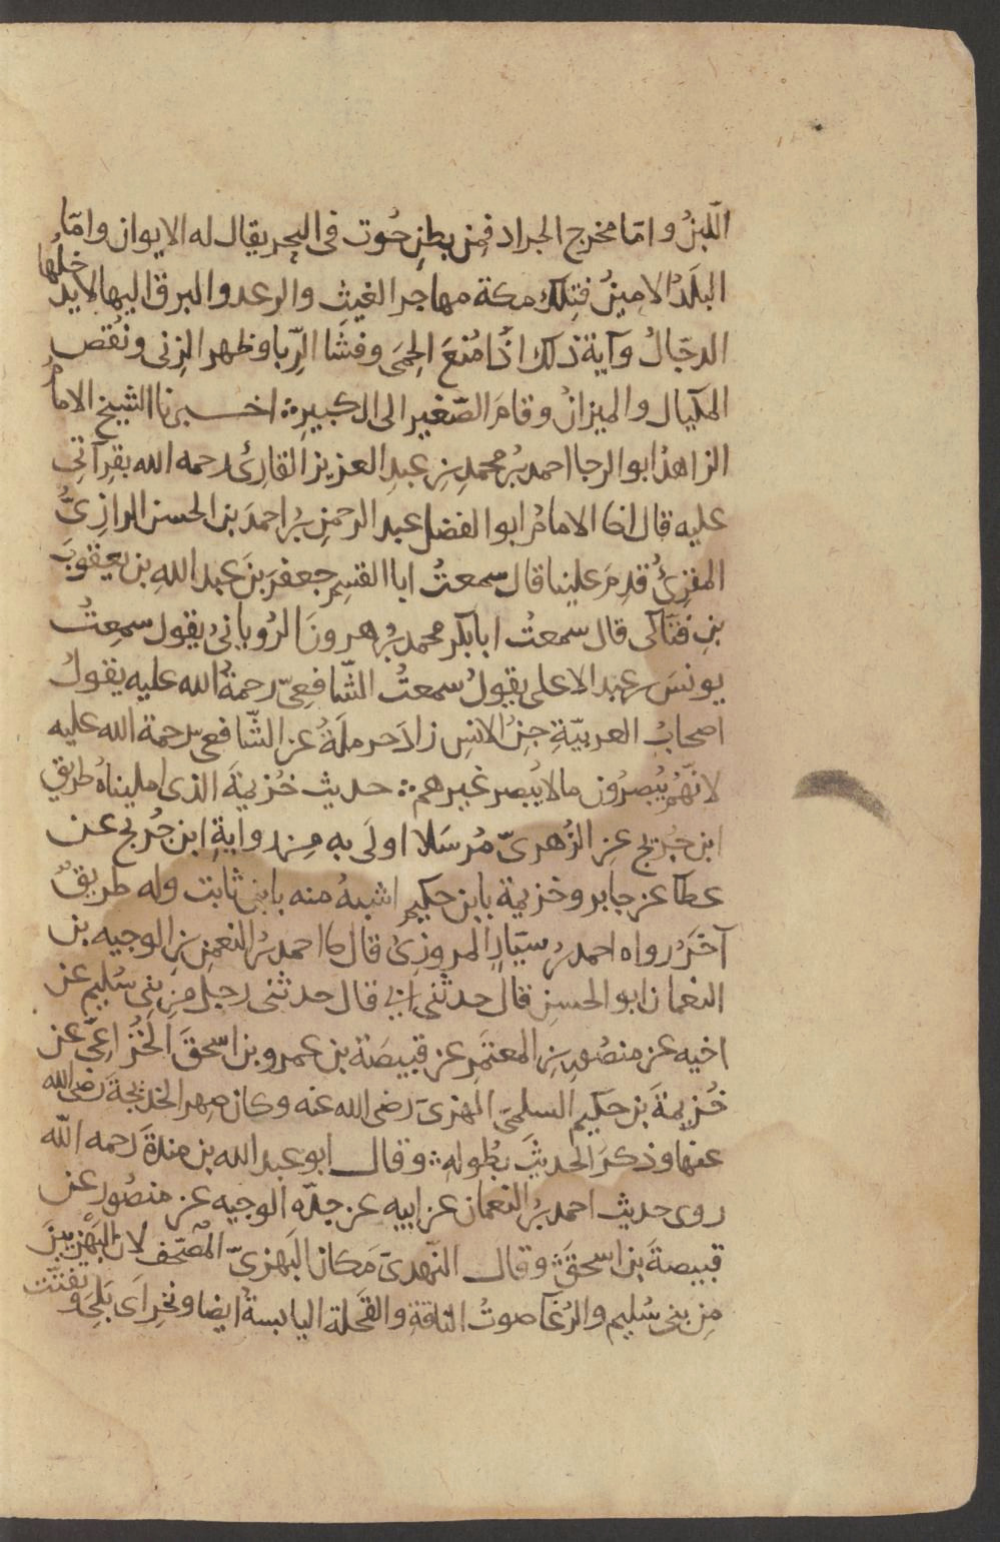 اللّبنُ وامّا مخرج الجراد فمِن بطنِ حُوت فى البحر يقال له الايوان وامّا
البلَدُ الامينُ فتِلك مكة مهاجر الغيثِ والرعد والبرق اليها لا يدخلُها
الدجّالُ وآية ذلك اذَا مُنعَ الحِمَى وفشَا الرِّبا وظهر الزنى ونُقص
المكيال والميزانُ وقامَ الصّغير الى الكبيرِ ۞ اخبرنا الشيخ الامامُ
الزاهدُ ابو الرجا احمد بنُ محمدِ بنِ عبدِ العزيز القارِئ رحمه الله بقِرآتِي
عليه قال انا الامامُ ابو الفضل عبد الرحمنِ بنُ احمدَ بن الحسن الرازِىُّ
المقرِئُ قدِمَ علينا قال سمعتُ ابا القسِمِ جعفرَ بنَ عبد اللهِ بن يعقوبَ
بنِ فنّاكى قال سمعتُ ابا بكر محمد بنُ هرونَ الرُويانىُّ يقول سمِعتُ
يونسَ بن عبد الاعلى يقولُ سمعتُ الشّافعِىّ رحمةُ الله عليه يقولُ
اصحابُ العربيّةِ جِنُّ الانسِ زادَ حرملَةُ عن الشّافعى رحمة الله عليه
لانّهُم يُبصرُون ما لا يُبصر غيرهم ۞ حديث خُزيمَةَ الذى امليناهُ طريق
ابن جُريج عنِ الزُهرىّ مُرسَلا اولَى به مِن روايةِ ابن جُريج عن
عطآ عن جابر وخزيمة بابن حكيمٍ اشبهُ منه بابنِ ثابت وله طريقٌ
آخَرُ رواه احمد بنُ سيّارِ المروزِىُّ قال نا احمد بنُ النعمنِ بنِ الوجيه بن
النعمان ابو الحسنِ قال حدثنى ابى قال حدثنى رجل مِن بنِى سُليم عن
اخيه عن منصُورِ بنِ المعتمَرِ عن قبيصَة بن عمرو بن اسحقَ الخُزاعِىّ عن
خُزيمةَ بن حكيم السلمىّ البهزىّ رضى الله عنه وكان صِهر الخديجةَ رضى الله
عنها وذكرَ الحديثَ بطُولهِ ۞ وقال ابو عبد الله بن مندةَ رحمه اللّه
روى حديث احمد بنُ النعمان عن ابيه عن جدّه الوجيه عن منصُور عن
قبيصةَ بن اسحقَ ۞ وقال النّهدىّ مَكان البَهزىّ المُصحّف لان البَهزيّينَ
مِن بنى سُليم والرُغآ صوتُ الناقةِ والقَحلة اليابسةُ ايضا ونخِرَ اى بَلِىَ وتفتّت